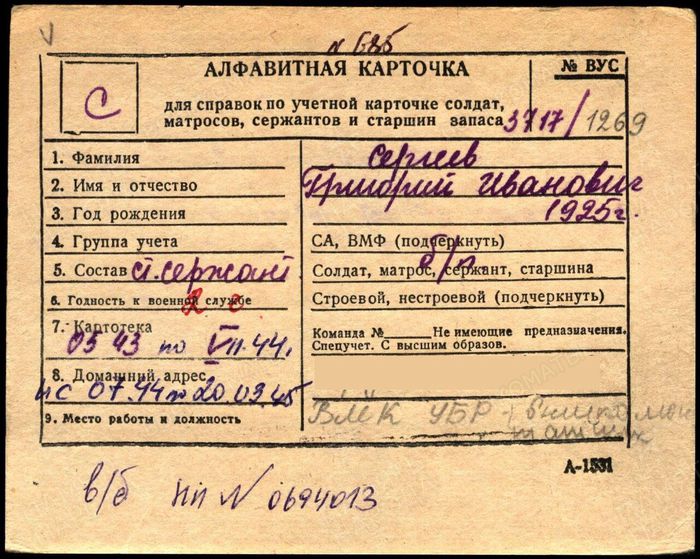 N 685
АЛФАВИТНАЯ КАРТОЧКА
№ ВУС
С
для справок по учетной карточке солдат,
матросов, сержантов и старшин запаса 3717/1269
1. Фамилия
Сергеев
2. Имя и отчество
Григорий Иванович
3. Год рождения
1925г.
4. Группа учета
СА, ВМФ (подчеркнуть)
5. Состав ст. сержант
Солдат, матрос, сержант, старшина
6. Годность к военной службе
Строевой, нестроевой (подчеркнуть)
7. Картотека
Команда № Не имеющие предназначения.
05 43 по VII.44г.
Спецучет. С высшим образов.
8. Домашний адрес
с 07.44 по 20.03.45
9. Место работы и должность
УБР
А-1531
в/б НП N 0694013